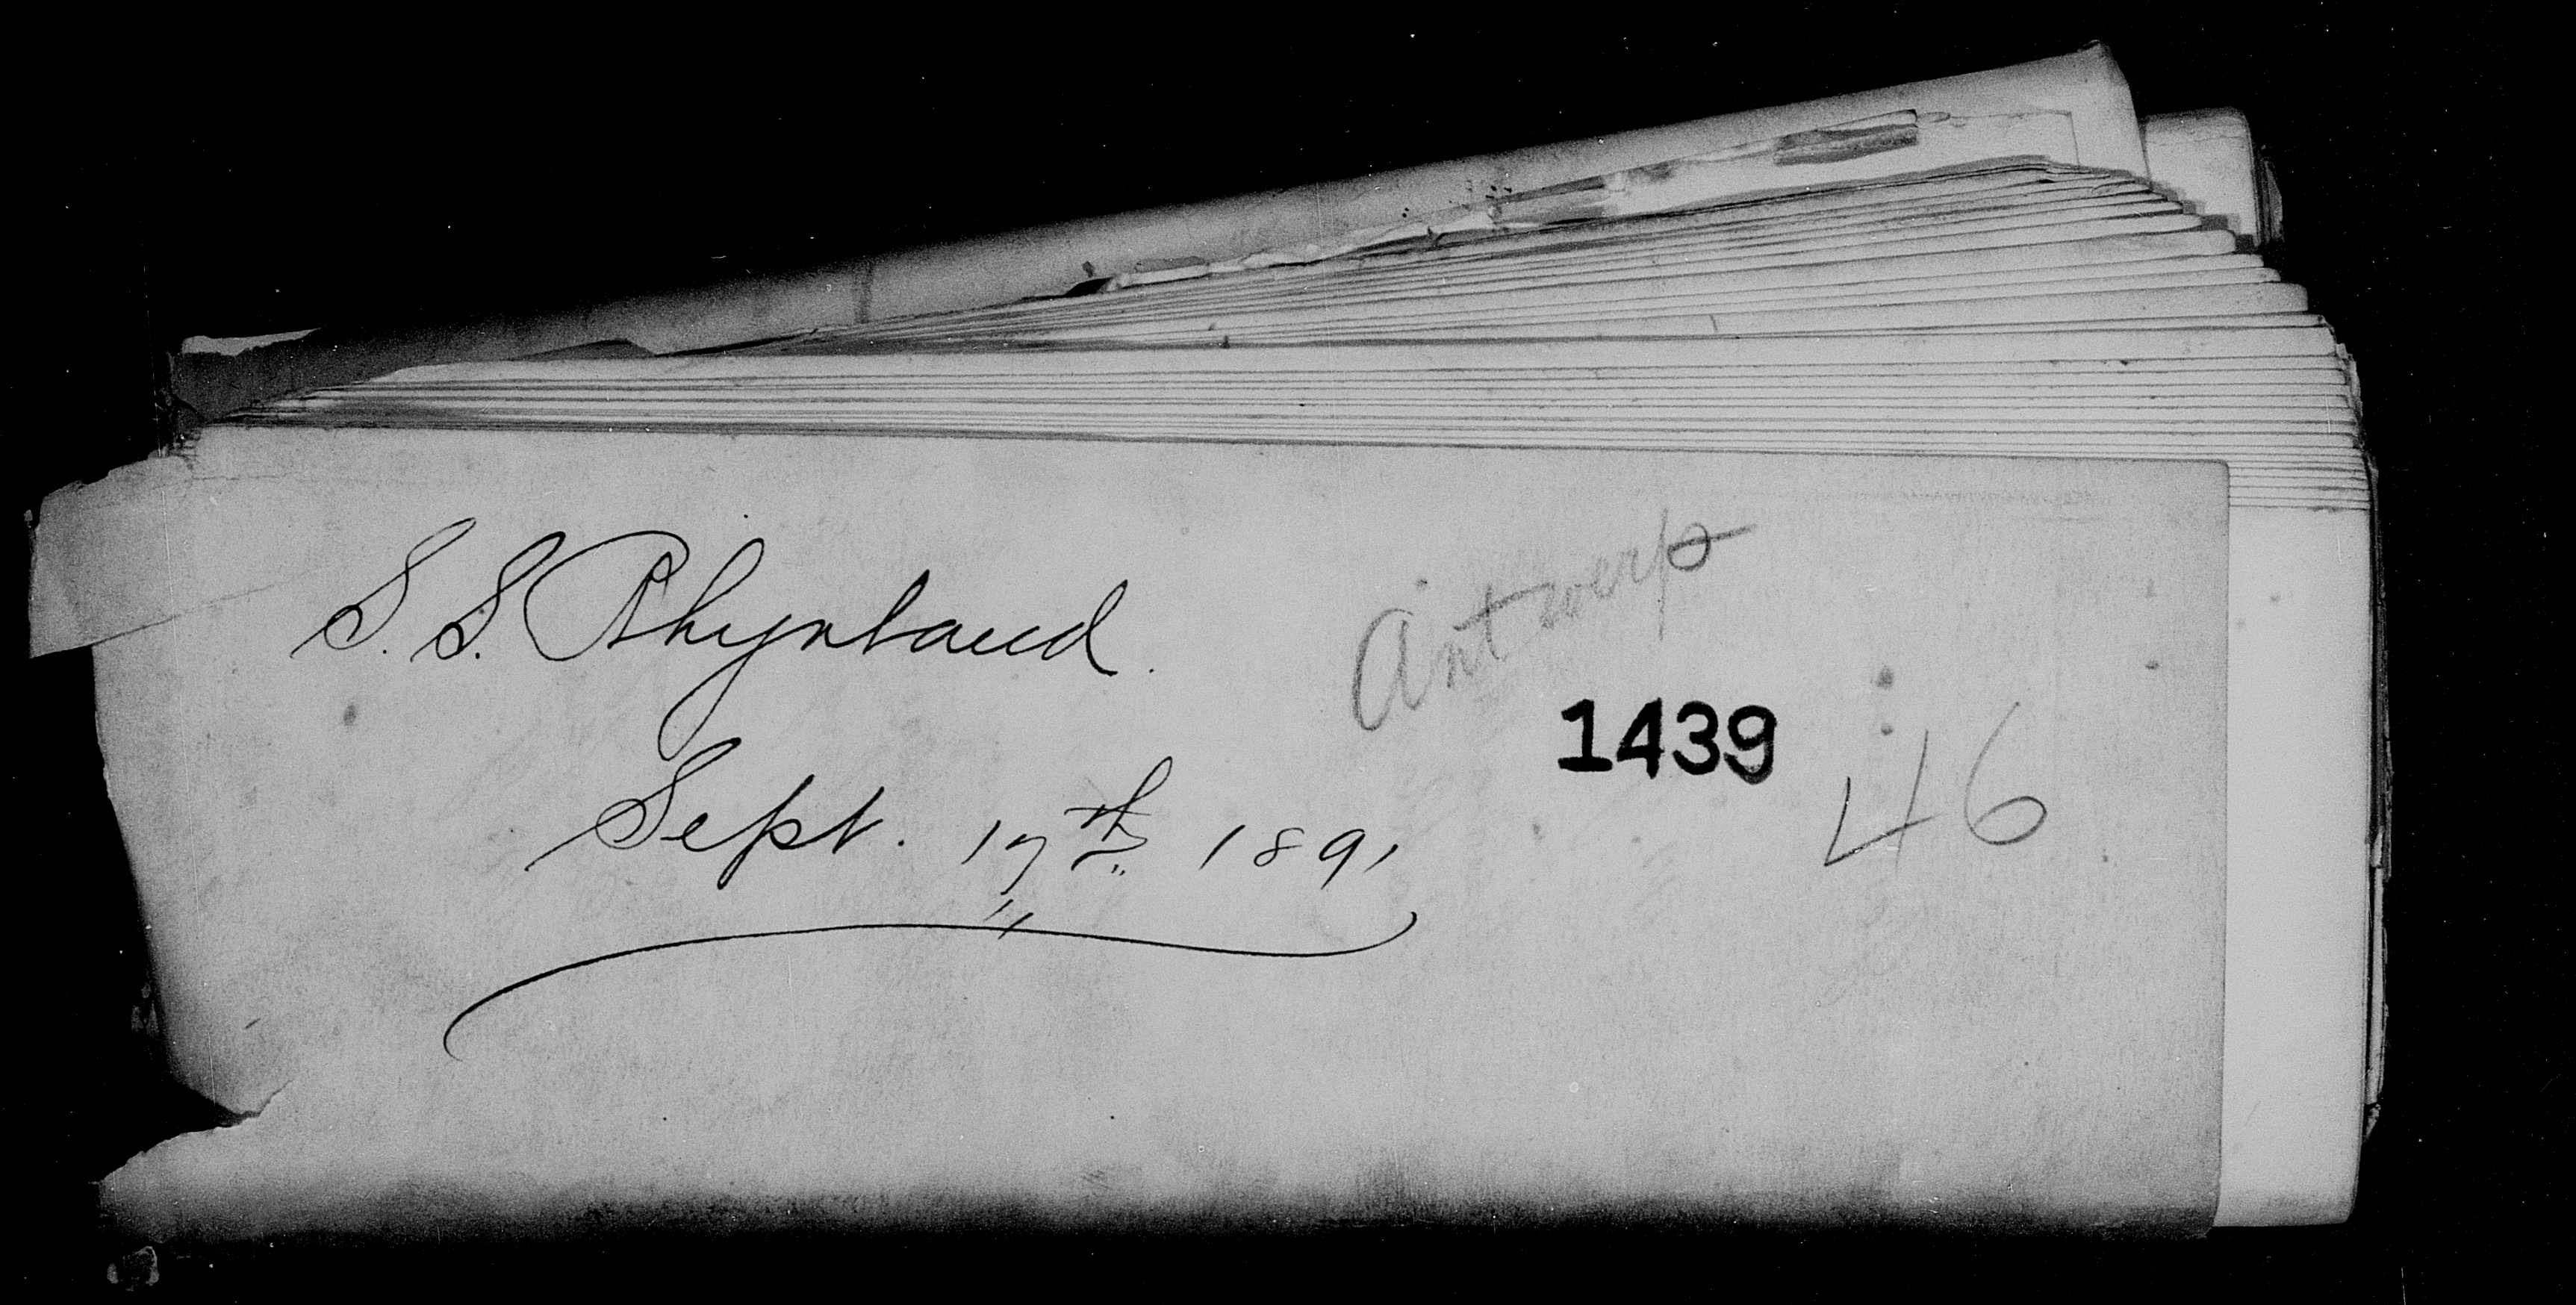 S. S. Rhynland.
Antwerp
1439
46
Sept. 17th 1891